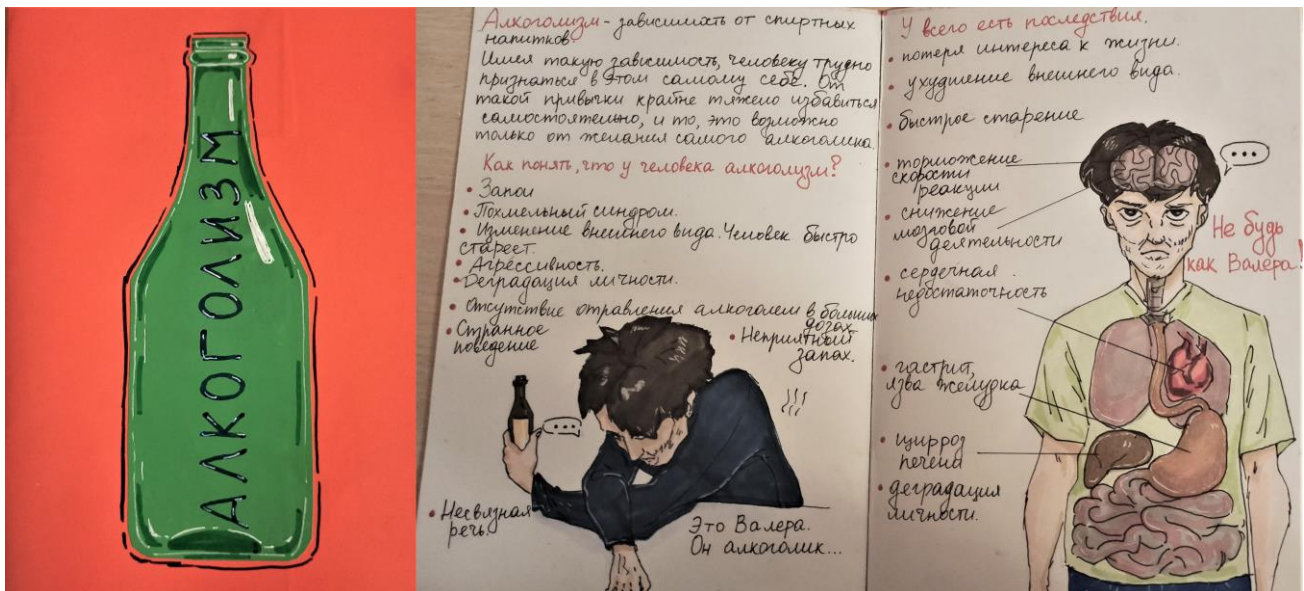 АЛКОГОЛИЗМ
Алкоголизм - зависимость от спиртных
напитков.
Имея такую зависимость, человеку трудно
признаться в этом самому себе. От
такой привычки крайне тяжело избавиться
самостоятельно, и то, это возможно
только от желания самого алкоголика.
Как понять, что у человека алкоголизм?
• Запои
• Похмельный синдром.
• Изменение внешнего вида. Человек быстро
стареет.
• Агрессивность.
• Деградация личности.
• Отсутствие отравления алкоголем в больших
дозах
• Странное
поведение
• Неприятный
запах.
• Несвязная
речь.
Это Валера.
Он алкоголик...
У всего есть последствия.
• потеря интереса к жизни.
• ухудшение внешнего вида.
• быстрое старение
• торможение
скорости
реакции
• снижение
мозговой
деятельности
• сердечная
недостаточность
• гастрит,
язва желудка
• цирроз
печени
• деградация
личности.
Не будь
как Валера!